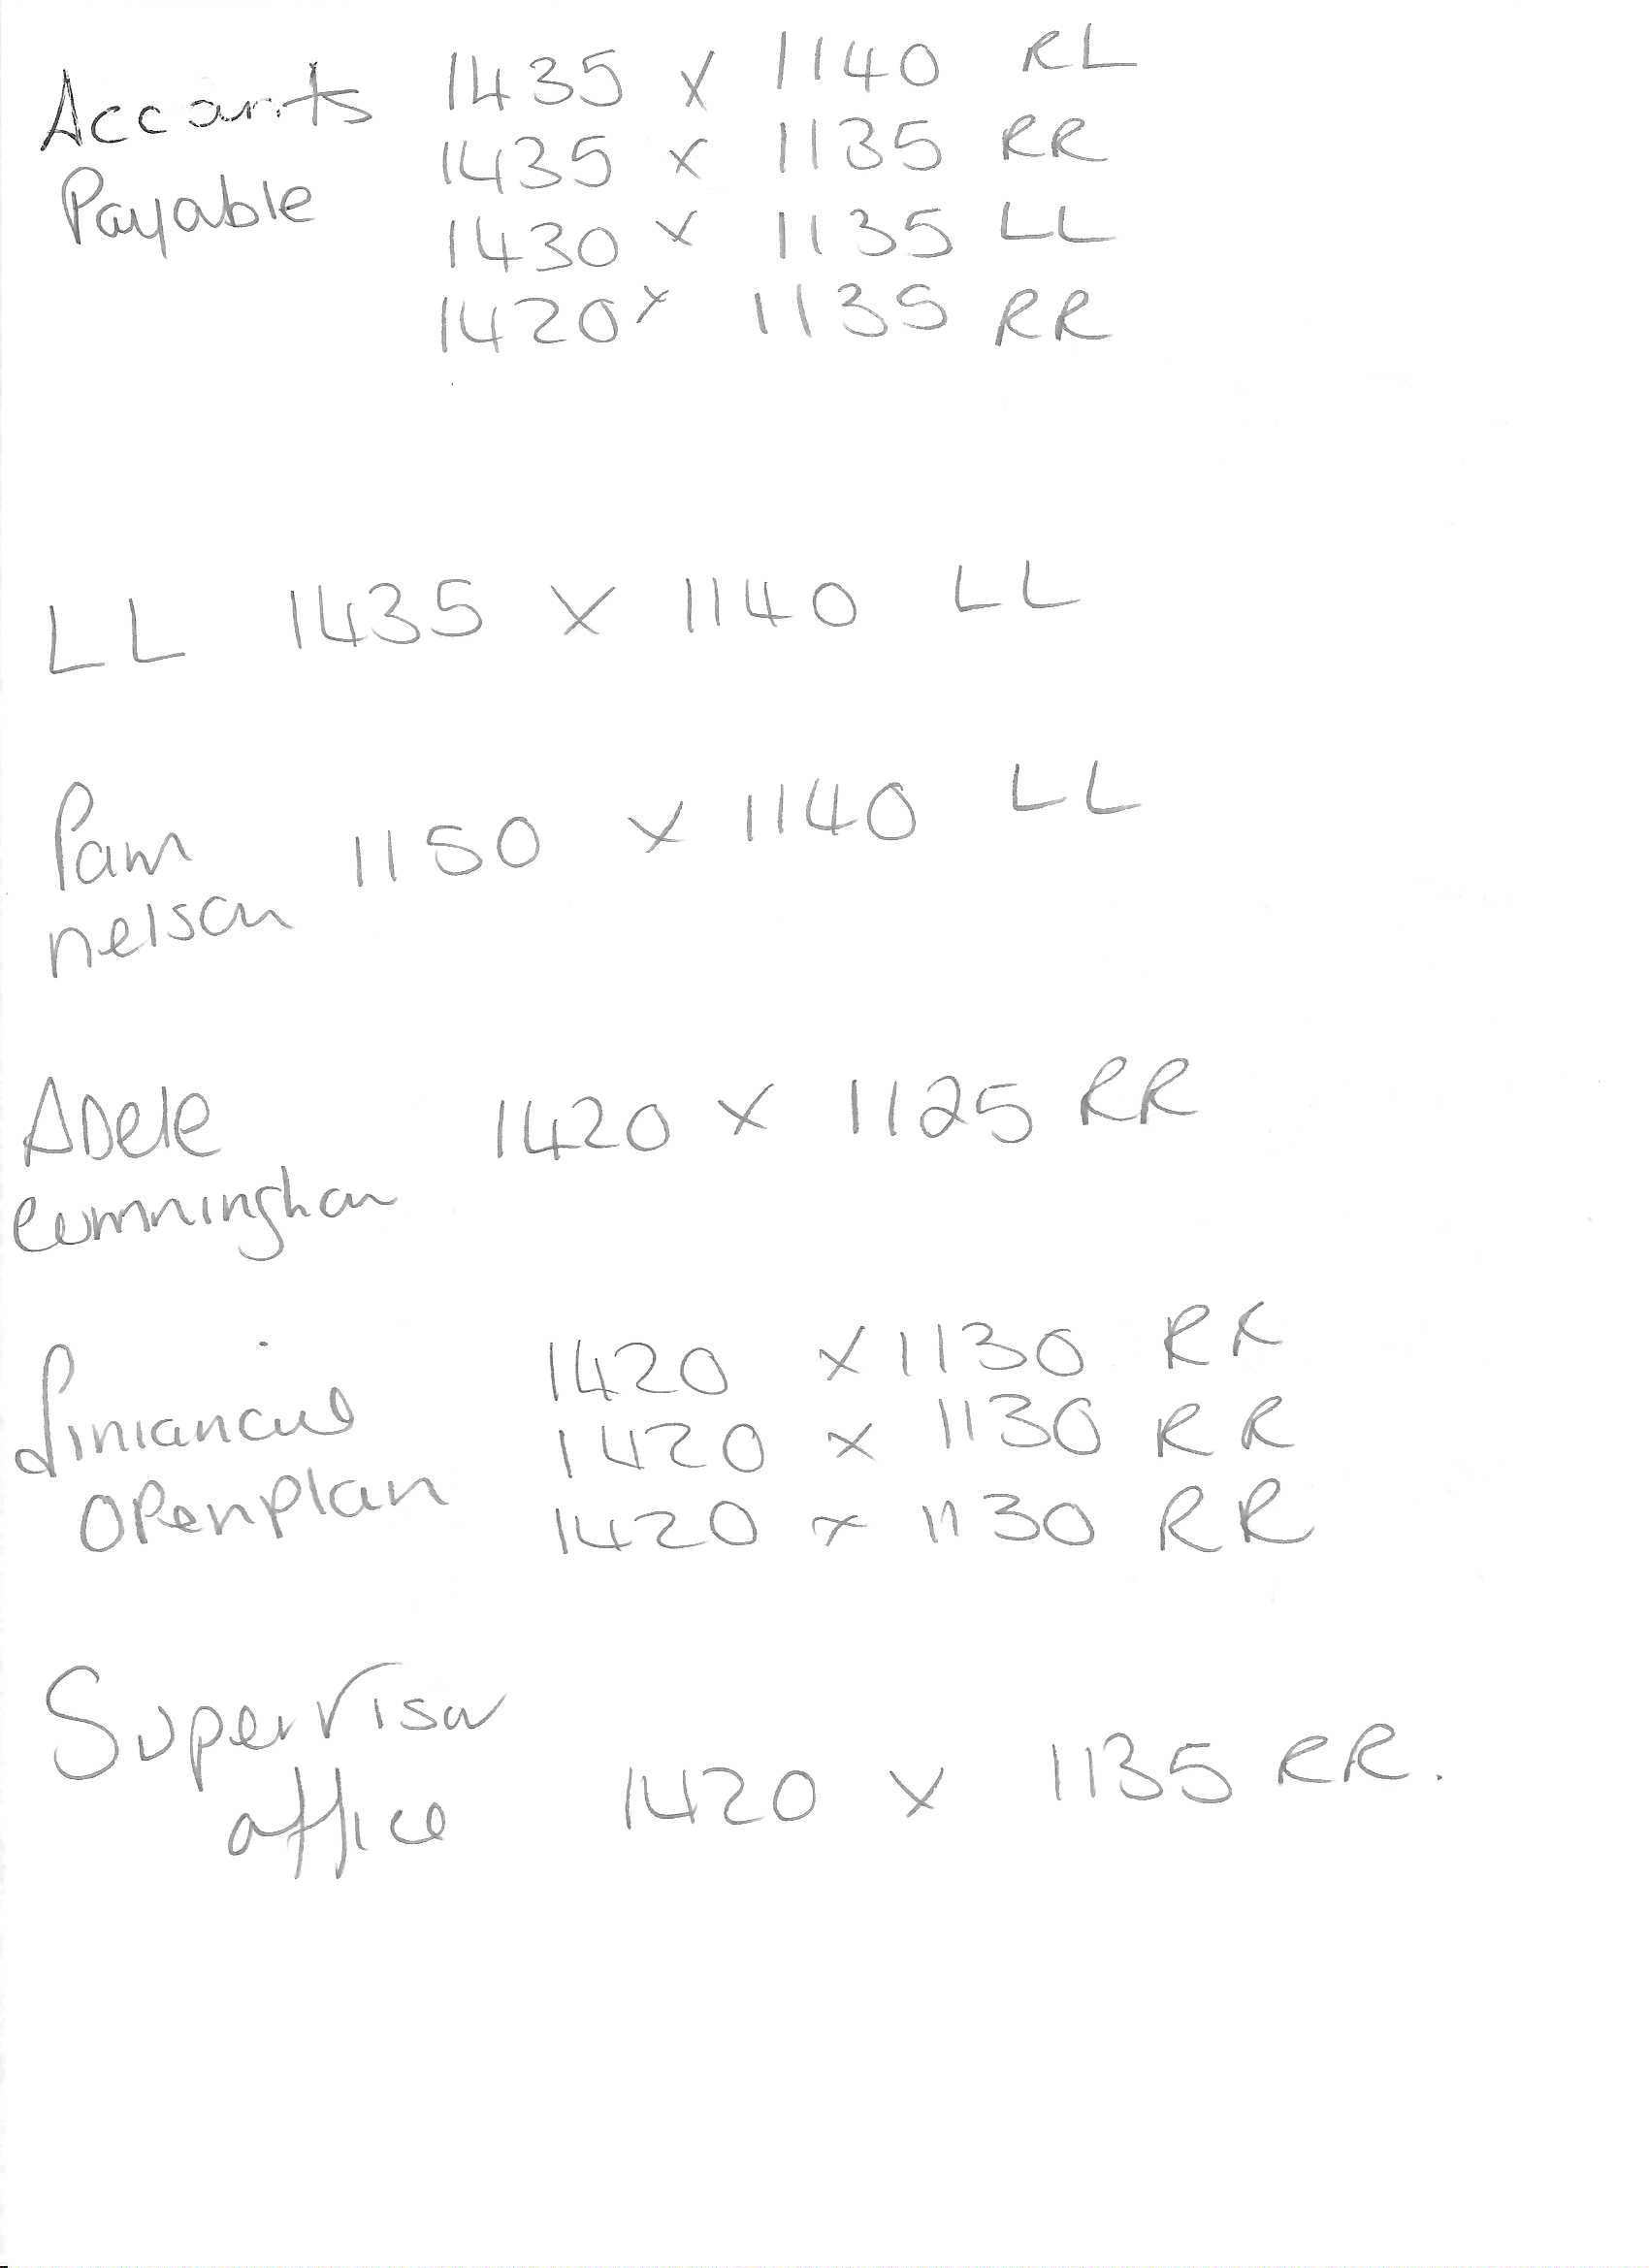 Accounts 1435 x 1140 RL
Payable 1435 x 1135 RR
1430 x 1135 LL
1420 x 1135 RR
LL 1435 x 1140 LL
Pam 1150 x 1140 LL
nelson
ADele 1420 x 1125 RR
Cumningham
finiancial 1420 x 1130 RR
1420 x 1130 RR
OPenPlan 1420 x 1130 RR
Supervisor
office 1420 x 1135 RR.